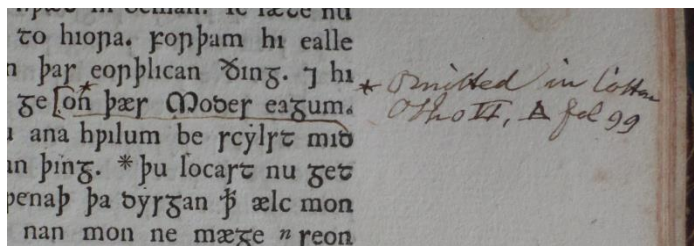 to hiora. forþam hi ealle
þas eorþlican ðing. ⁊ hi
geson þæs Modes eagum.
ana hƿilum be scylst mid
þing. * þu locast nu get
ƿenaþ þa dysgan ꝥ ælc mon
nan mon ne mæge n seon
* Omitted in Cotton
Otho VI, A fol 99